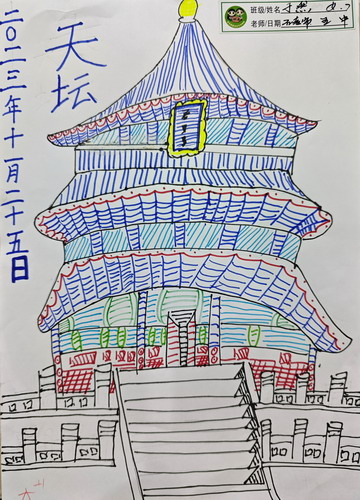 天坛
二〇二三年十一月二十五日
班级/姓名
老师/日期